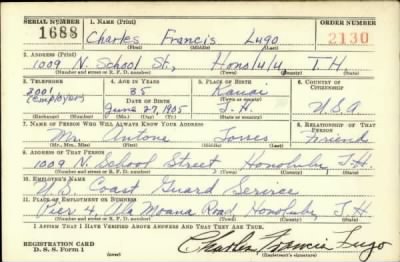 SERIAL NUMBER 1. NAME (Print) ORDER NUMBER
1688 Charles Francis Lugo 2130
(First) (Middle) (Last)
2. ADDRESS (Print)
1009 N. School St., Honolulu T.H.
(Number and street or R. F. D. number) (Town) (County) (State)
3. TELEPHONE 4. AGE IN YEARS 5. PLACE OF BIRTH 6. COUNTRY OF CITIZENSHIP
2001 35 Kauai
(employer) DATE OF BIRTH (Town or county)
June 27, 1905 T.H. U.S.A
(Exchange) (Number) (Mo.) (Day) (Yr.) (State or country)
7. NAME OF PERSON WHO WILL ALWAYS KNOW YOUR ADDRESS 8. RELATIONSHIP OF THAT PERSON
Mr. Antone Torres Friends
(Mr., Mrs., Miss) (First) (Middle) (Last)
9. ADDRESS OF THAT PERSON
1009 N. School Street Honolulu, T.H.
(Number and street or R. F. D. number) (Town) (County) (State)
10. EMPLOYER'S NAME
U.S. Coast Guard Services
11. PLACE OF EMPLOYMENT OR BUSINESS
Pier 4, Ala Moana Road, Honolulu, T.H.
(Number and street or R. F. D. number) (Town) (County) (State)
I AFFIRM THAT I HAVE VERIFIED ABOVE ANSWERS AND THAT THEY ARE TRUE.
REGISTRATION CARD Charles Francis Lugo
D. S. S. Form 1 (over) (Registrant's signature)